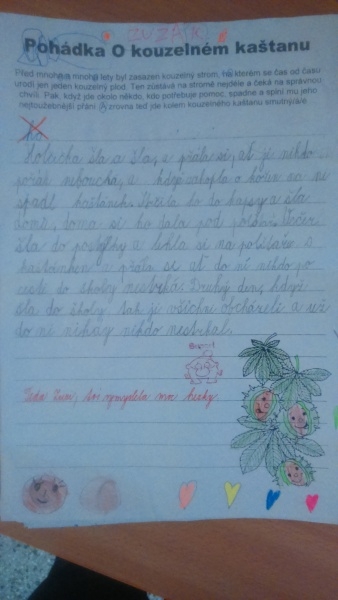 ZUZA K
Pohádka O kouzelném kaštanu
Před mnoha a mnoha lety byl zasazen kouzelný strom, na kterém se čas od času
urodí jen jeden kouzelný plod. Ten zůstává na stromě nejdéle a čeká na správnou
chvíli. Pak, když jde okolo někdo, kdo potřebuje pomoc, spadne a splní mu jeho
nejtoužebnější přání. A zrovna teď jde kolem kouzelného kaštanu smutný/á/é
Holčička šla a šla, a přála si, ať ji někdo
pořád nebouchá, a když zakopla o kořen na ni
spadl kaštánek. Vzala ho do kapsy a šla
domů, doma si ho dala pod polštář. Večer
šla do postýlky a lehla si na polštářek s
kaštánkem a přála si ať do ní nikdo po
cestě do školy nestrká. Druhý den, když
šla do školy, tak ji všichni obcházeli a už
do ní nikdy nikdo nestrkal.
Bravo!
Zuzi, to's vymyslela moc hezky.